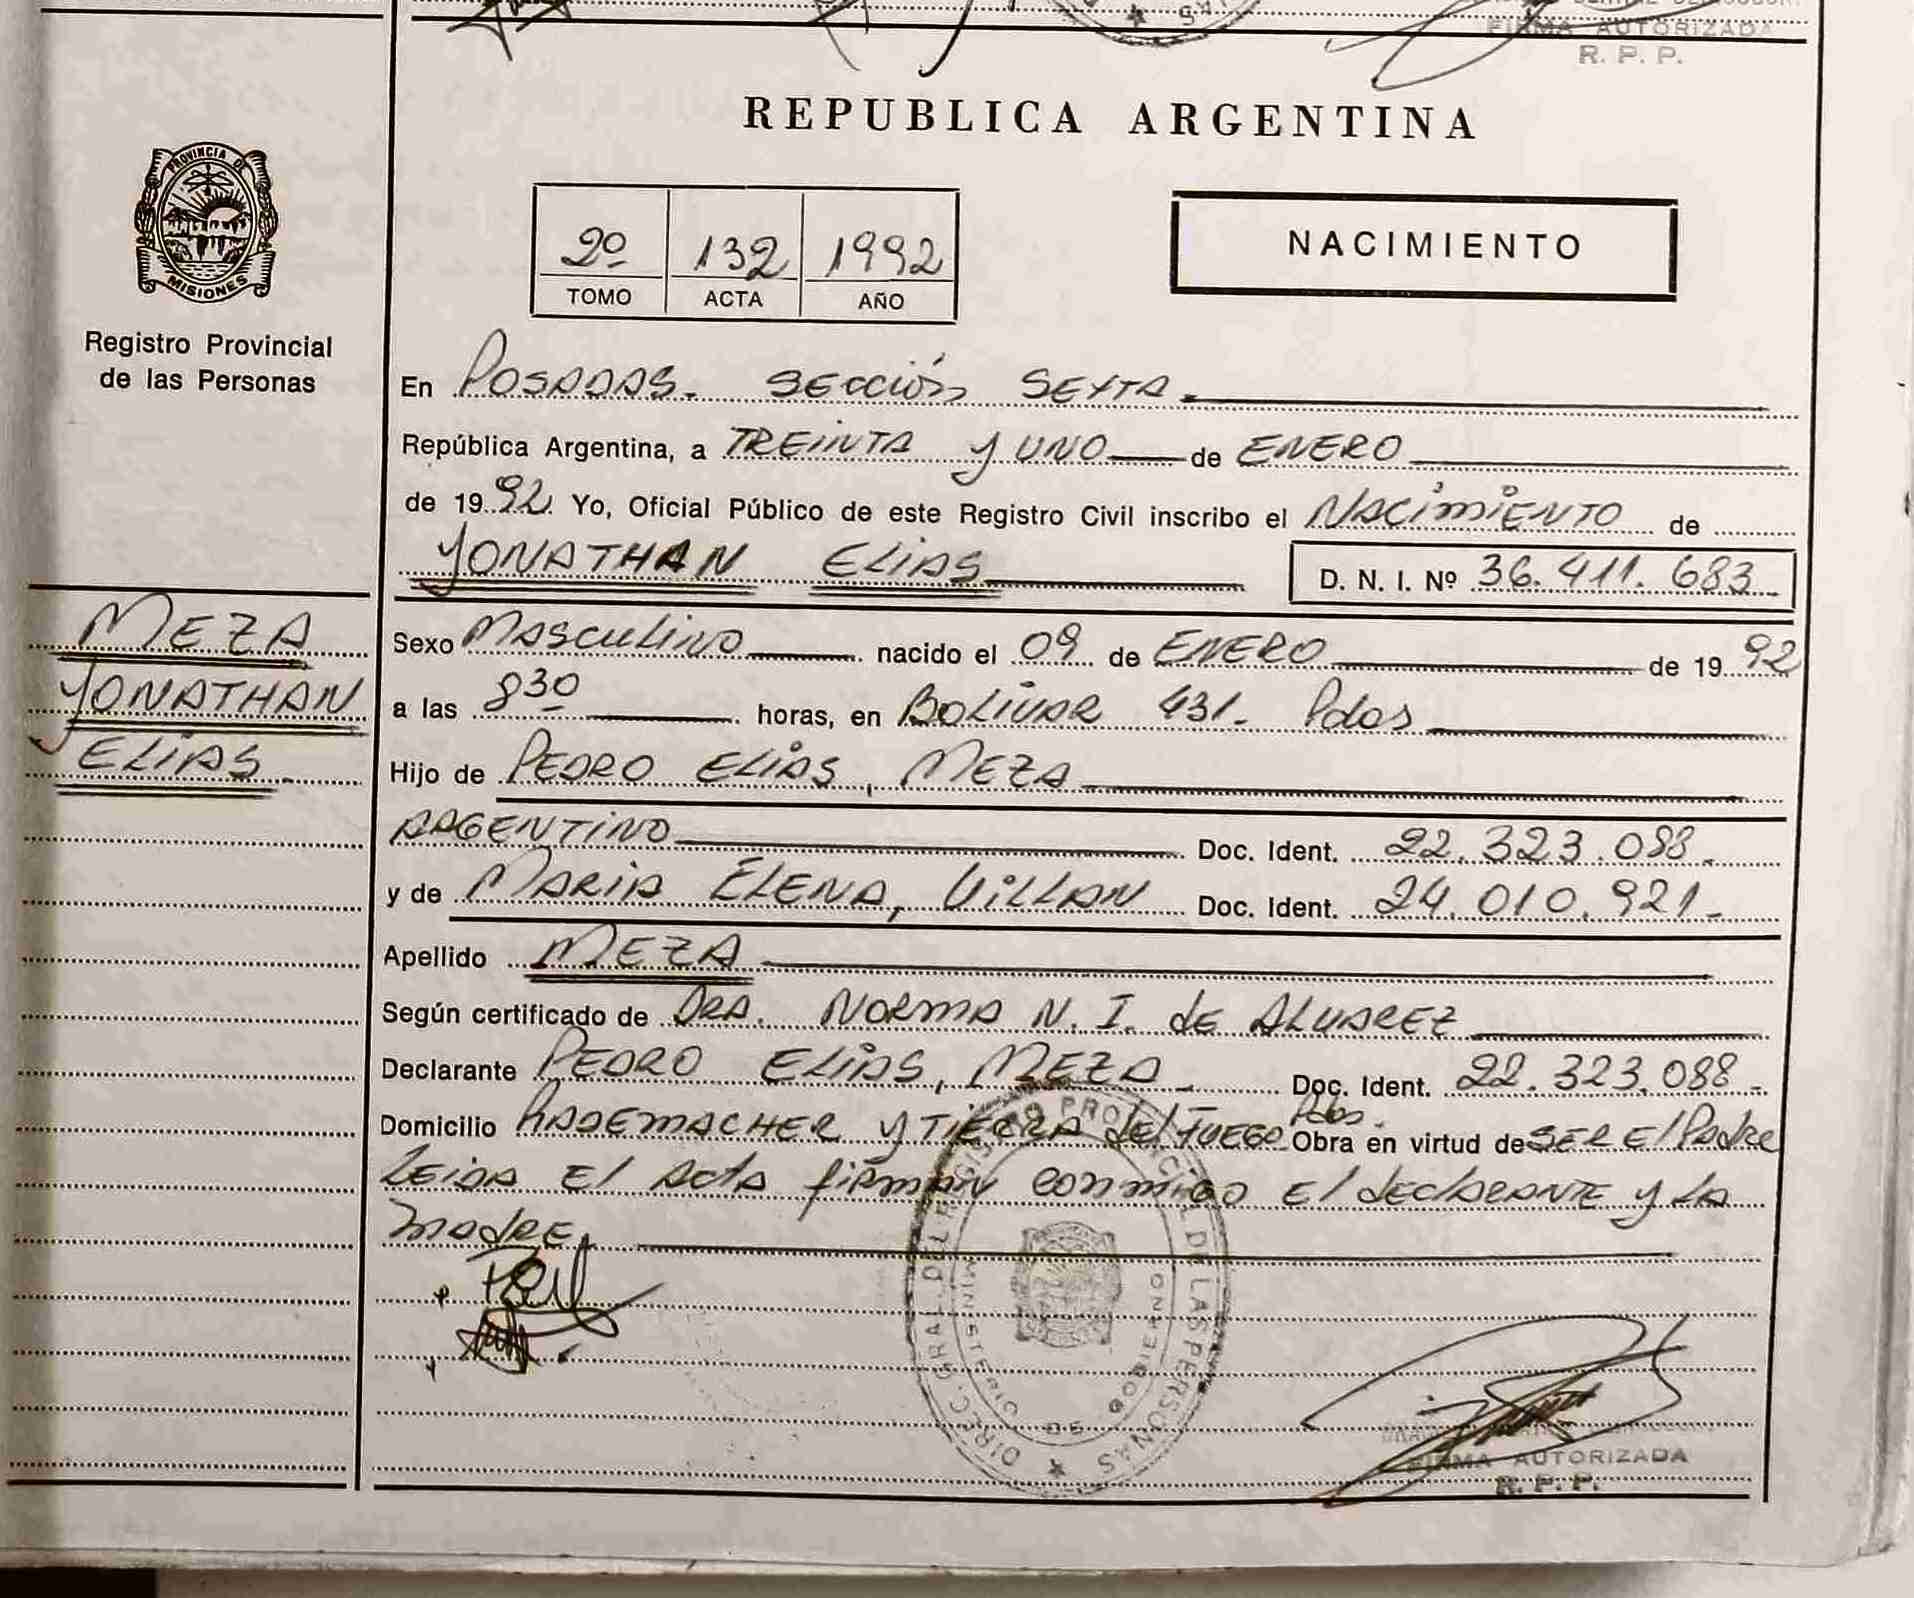 FIRMA AUTORIZADA
R. P. P.
REPUBLICA ARGENTINA
PROVINCIA DE
MISIONES
Registro Provincial
de las Personas
2º 132 1992
TOMO ACTA AÑO
NACIMIENTO
En POSADAS. SECCIÓN SEXTA.
República Argentina, a TREINTA y UNO de ENERO
de 1992 Yo, Oficial Público de este Registro Civil inscribo el NACIMIENTO de
YONATHAN ELIAS D. N. I. Nº 36.411.683
MEZA
YONATHAN
ELIAS
Sexo MASCULINO nacido el 09 de ENERO de 1992
a las 8 30 horas, en BOLIVAR 431. Pdas
Hijo de PEDRO ELIAS, MEZA
ARGENTINO Doc. Ident. 22.323.088.
y de MARIA ELENA, VILLAN Doc. Ident. 24.010.921.
Apellido MEZA
Según certificado de DRA. NORMA N. I. de ALVAREZ
Declarante PEDRO ELIAS, MEZA. Doc. Ident. 22.323.088.
Domicilio RADEMACHER y TIERRA del FUEGO Pdas. Obra en virtud de SER El Padre
LEIDA El Acta firman conmigo El declarante y LA
madre
DIREC. GRAL. DEL REGISTRO PROVINCIAL DE LAS PERSONAS
MINISTERIO DE GOBIERNO
FIRMA AUTORIZADA
R. P. P.